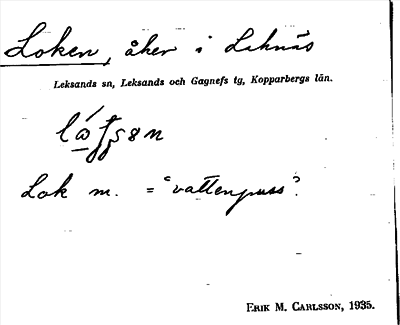 Loken, åker i Leknäs
Leksands sn, Leksands och Gagnefs tg, Kopparbergs län.
Lok m. = "vattenpuss".
ERIK M. CARLSSON, 1935.